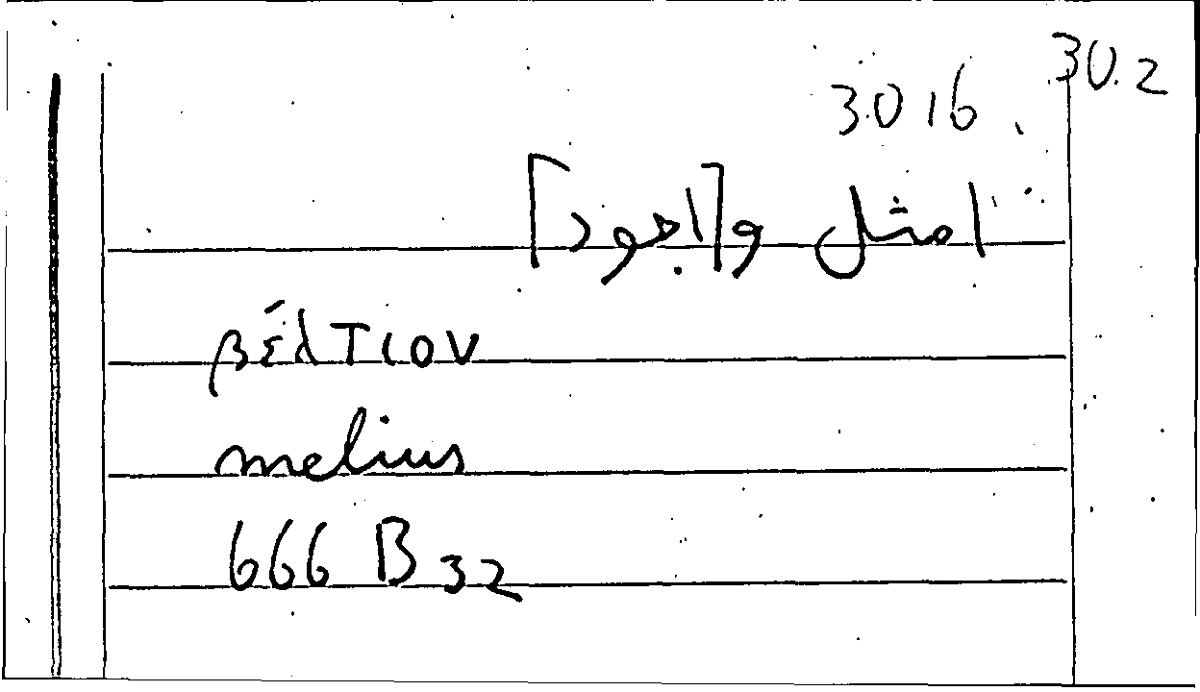 30.2
3016.
امثل و[اجود]
βέλτιον
melius
666 B 32